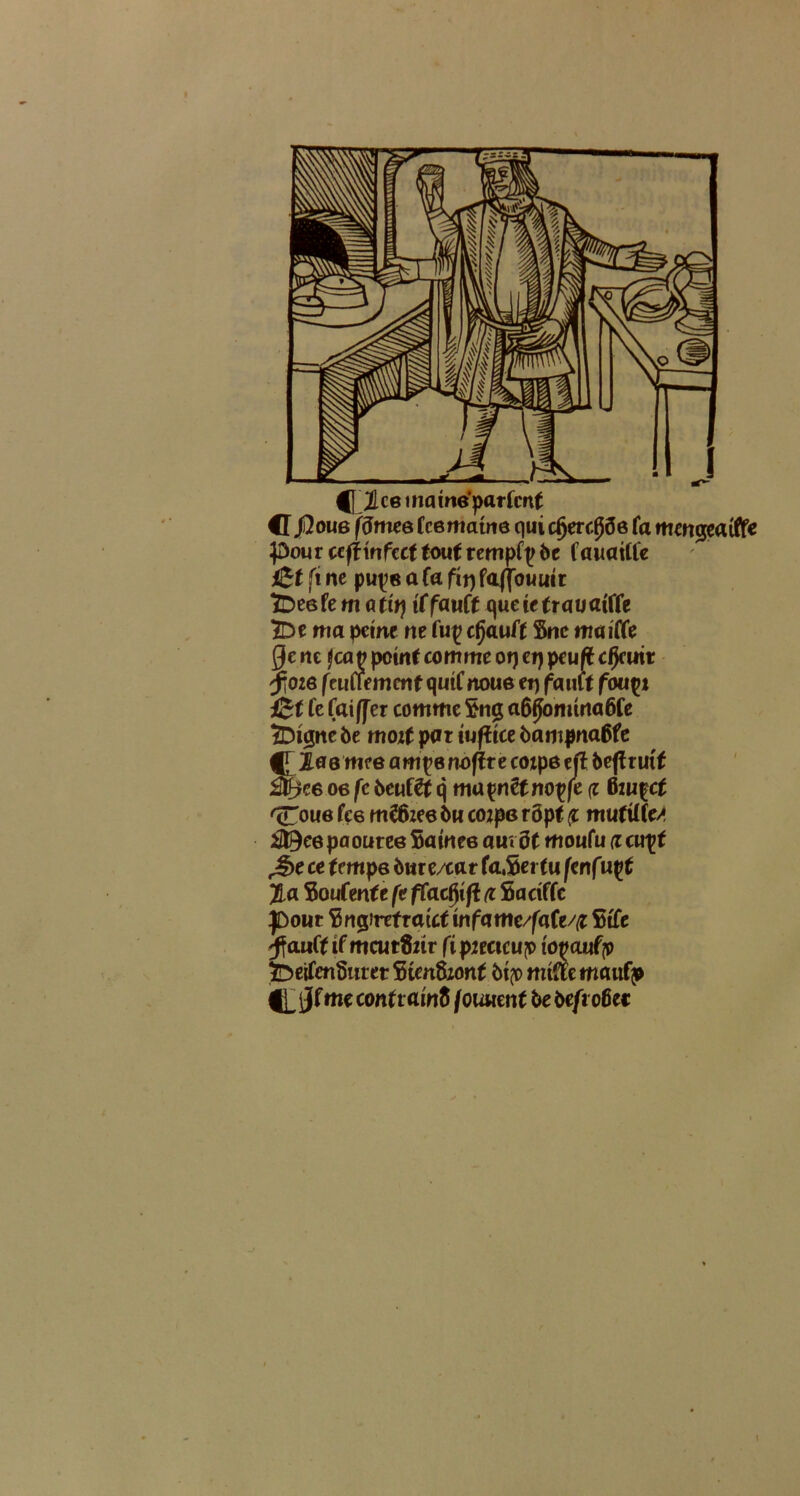 ¶ Les mains parlent
¶ Nous sõmes les mains qui cherchõs la mengeaille
Pour cest infect tout remply de lauaille
Et si ne puys a la fin lassouuir
Des le matin il fault que ie trauaille
De ma peine ne luy chault vne maille
Je ne scay point comme on en peust cheuir
Fors seullement quil nous en fault fouyr
Et le laisser comme vng abhominable
Digne de mort par iustice dampnable
¶ Las mes amys nostre corps est destruit
Mes os se deulẽt q maynẽt noyse ⁊ bruyct
Tous les mẽbres du corps rõpt ⁊ mutille/
Mes paoures vaines aui õt moulu ⁊ cuyt
De ce temps dure/car la vertu sensuyt
La voulente se flachist ⁊ vacille
Pour vng retraict infame/sale/⁊ vile
Fault il meurtrir si precieux ioyaulx
Deilen durer viendront dix mille maulx
¶ Il me contraind souuent de desrober